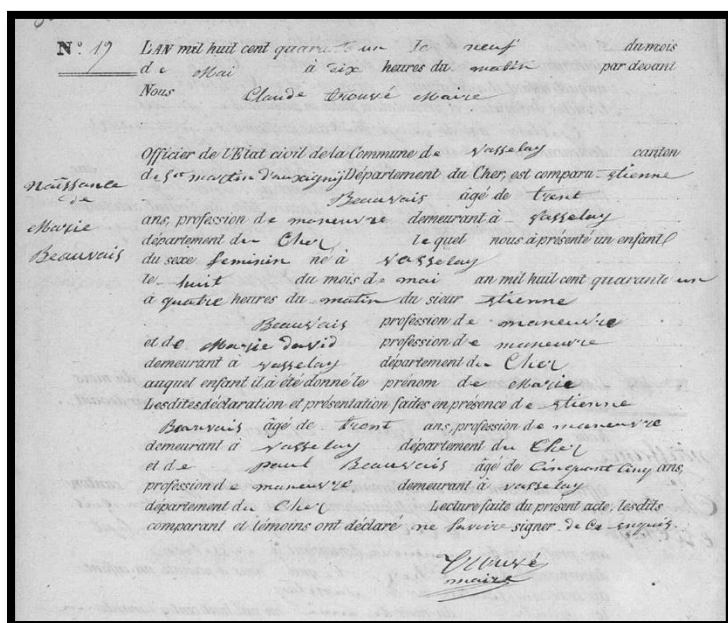 N° 19 L'AN mil huit cent quarante un le neuf du mois
de Mai à dix heures du matin par devant
Nous Claude trouvé Maire
Officier de l'Etat civil de la Commune de Vasselay canton
de St martin d'auxigny Département du Cher, est compara Etienne
Naissance
de
Marie
Beauvais
Beauvais âgé de trent
ans, profession de maneuvre demeurant à Vasselay
département du Cher lequel nous à présenté un enfant
du sexe feminin né à Vasselay
le huit du mois de mai an mil huit cent quarante un
à quatre heures du matin du sieur Etienne
Beauvais profession de maneuvre
et de Marie david profession de maneuvre
demeurant à Vasselay département du Cher
auquel enfant il à été donné le prénom de Marie
Lesdites déclaration et présentation faites en présence de Etienne
Beauvais âgé de trent ans, profession de maneuvre
demeurant à Vasselay département du Cher
et de paul Beauvais âgé de Cinquant Cinq ans,
profession de maneuvre demeurant à Vasselay
département du Cher Lecture faite du présent acte, lesdits
comparant et témoins ont déclaré ne savoire signer de Ce enquis
Trouvé
maire